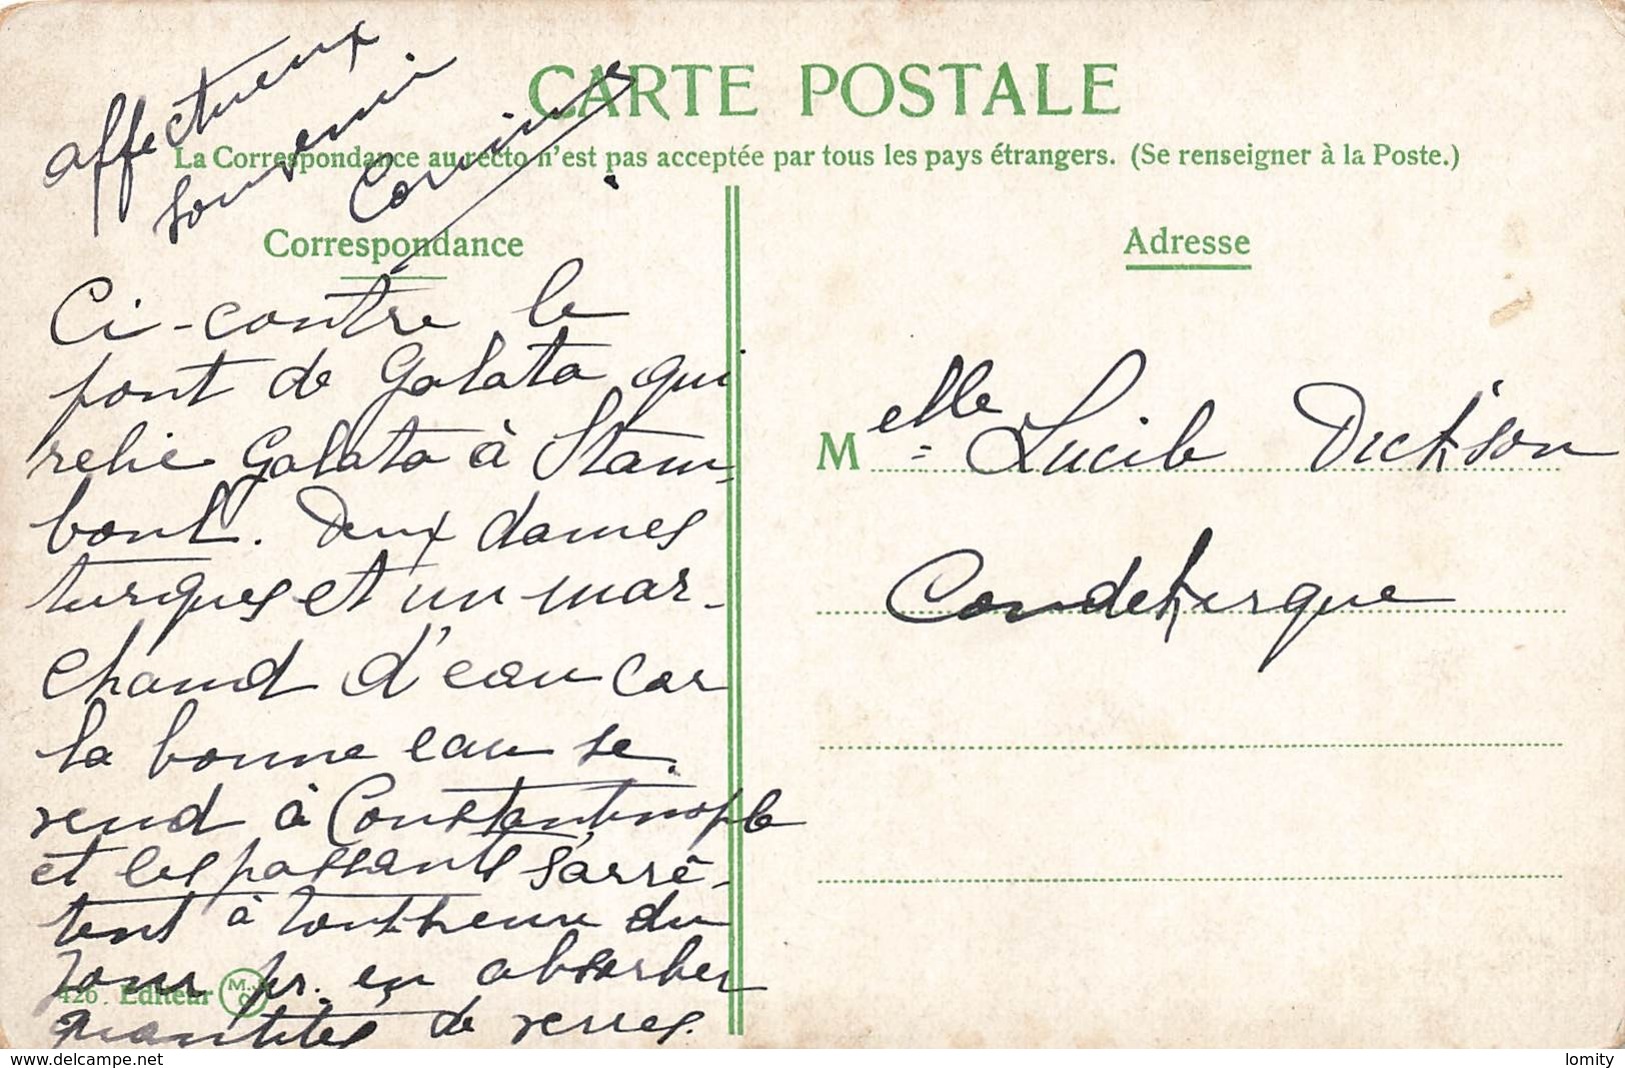 affectueux
souvenir
Corinne
CARTE POSTALE
La Correspondance au recto n'est pas acceptée par tous les pays étrangers. (Se renseigner à la Poste.)
Correspondance
Ci-contre le
pont de Galata qui
relie Galata à Stam-
boul. Deux dames
turques et un mar-
chand d'eau car
la bonne eau se
vend à Constantinople
et les passants s'arrê-
tent à toute heure du
jour pr. en absorber
quantités de verres.
426. Editeur M.J.C
Adresse
Melle Lucile Dickson
Coudekerque
delcampe.net
lomity